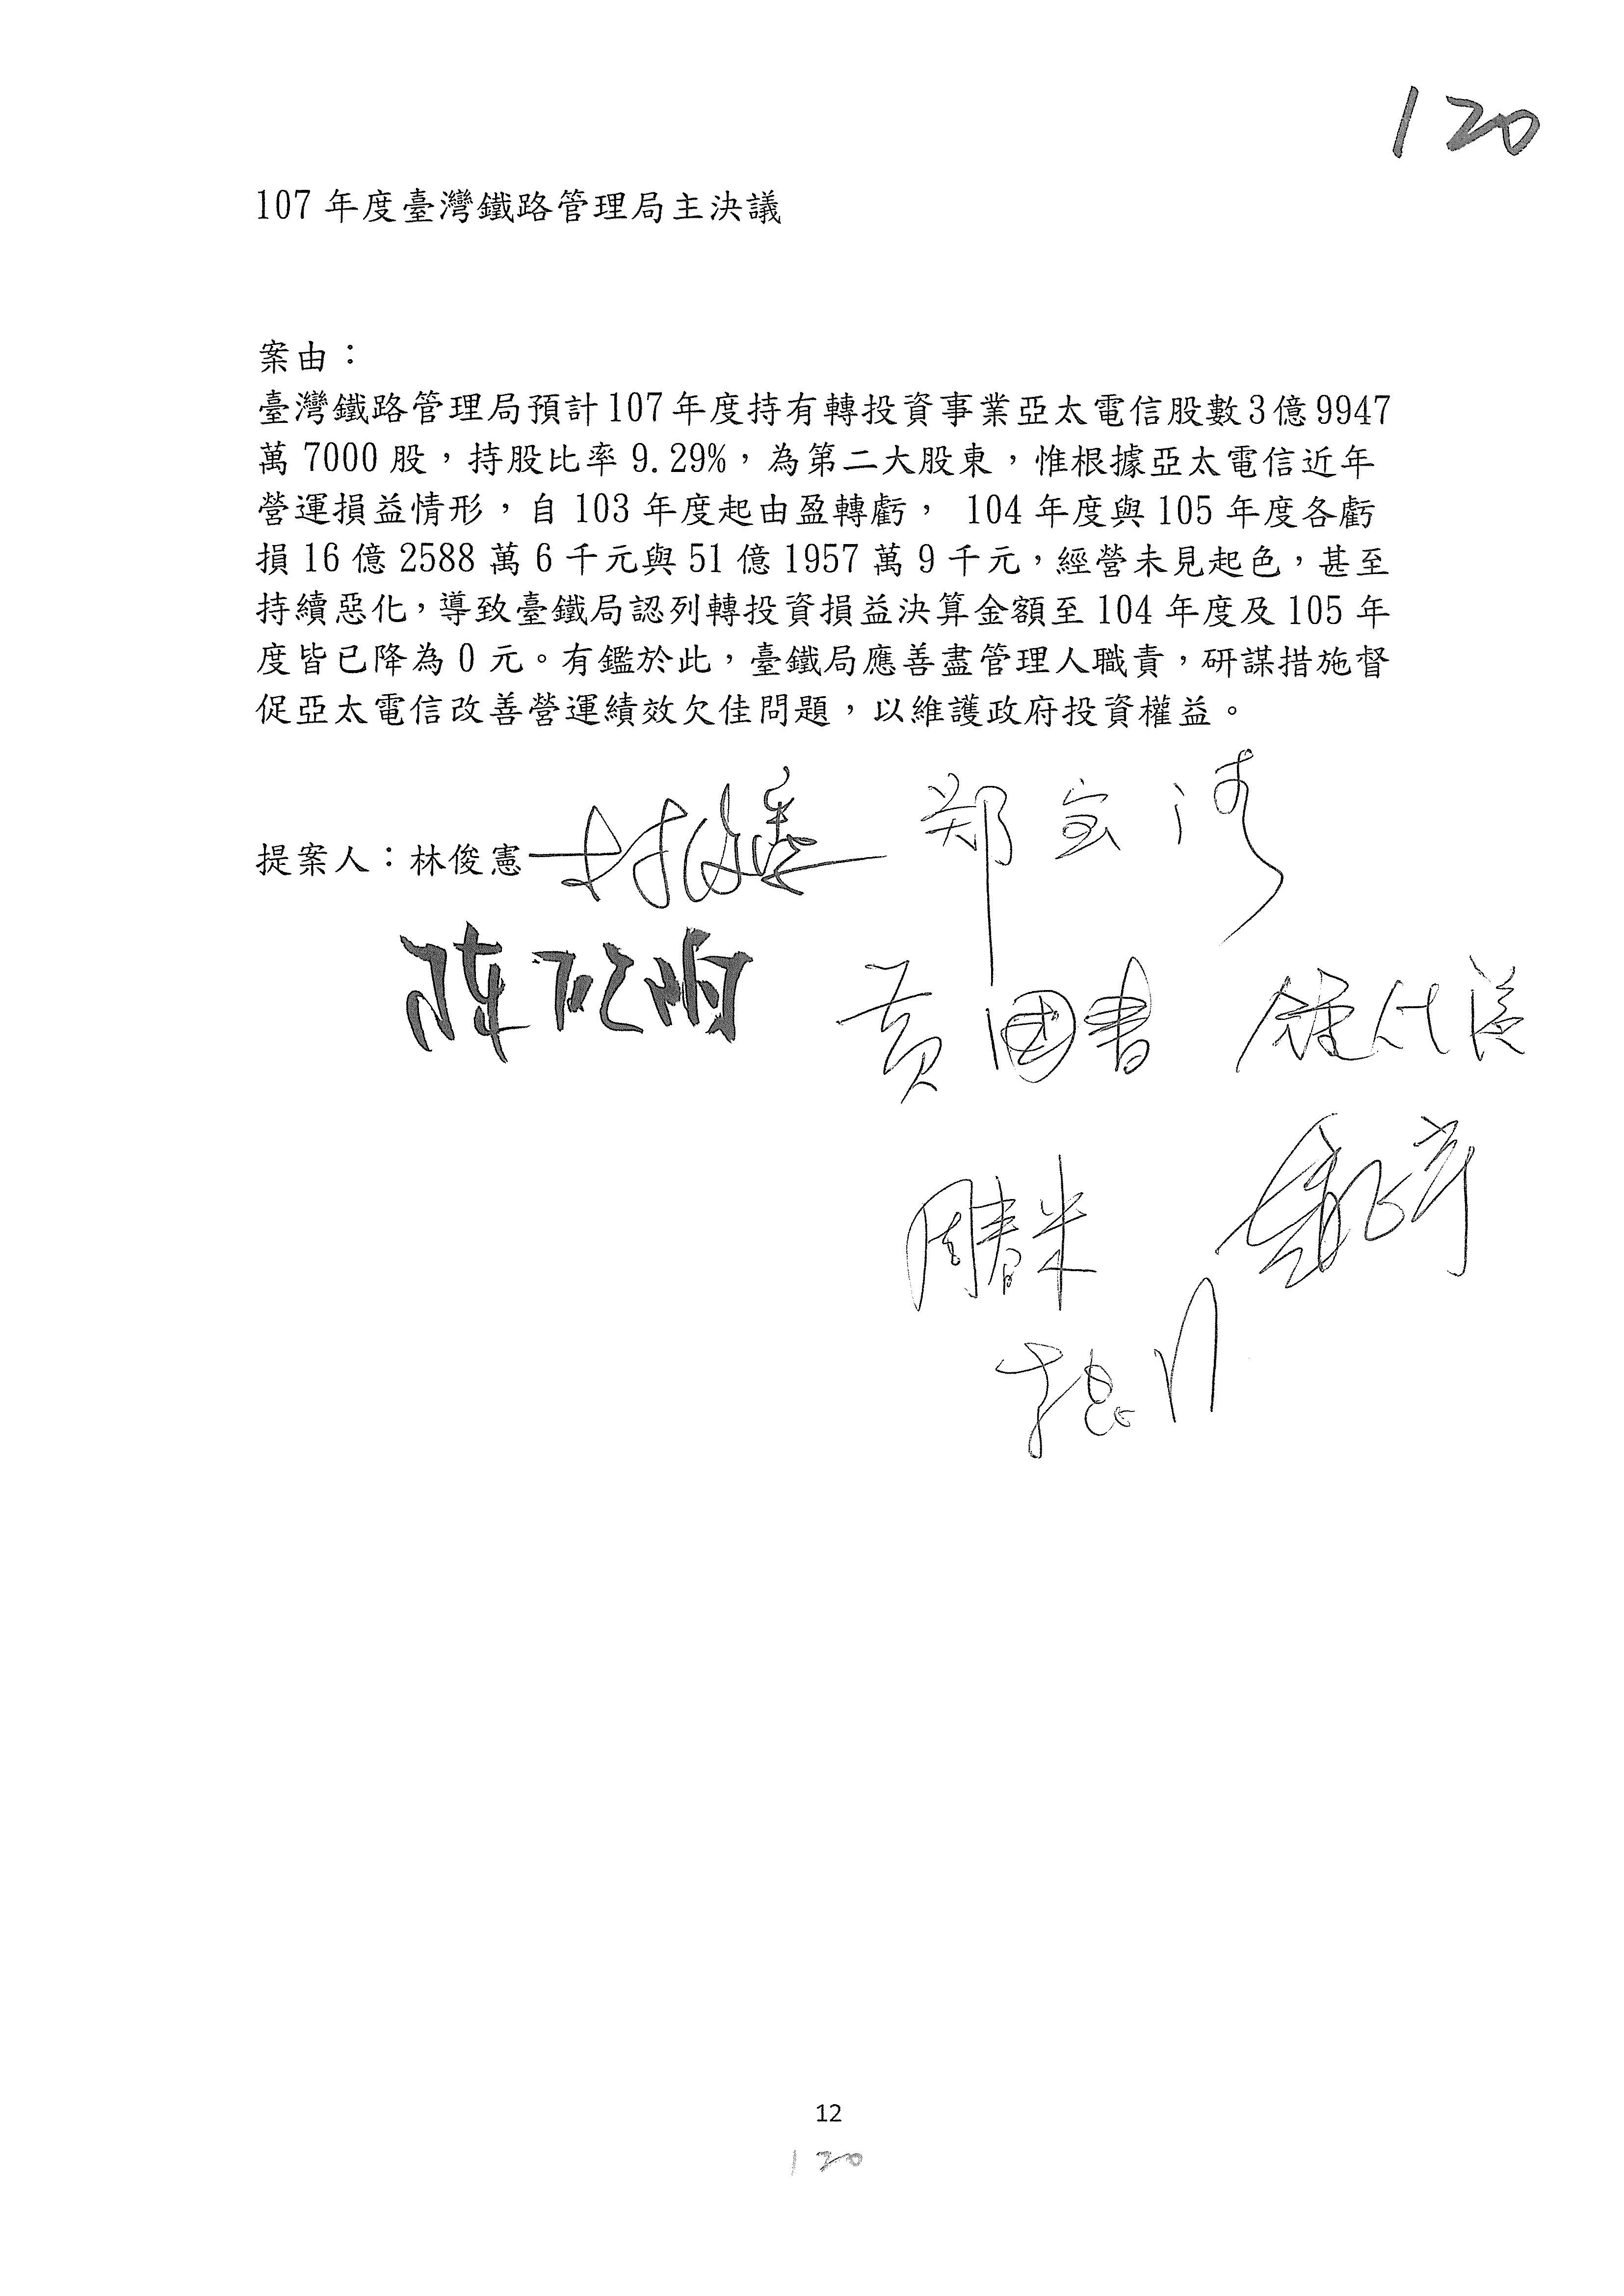 120
107 年度臺灣鐵路管理局主決議
案由：
臺灣鐵路管理局預計107年度持有轉投資事業亞太電信股數3億9947
萬 7000 股，持股比率 9.29%，為第二大股東，惟根據亞太電信近年
營運損益情形，自 103 年度起由盈轉虧， 104 年度與 105 年度各虧
損 16 億 2588 萬 6 千元與 51 億 1957 萬 9 千元，經營未見起色，甚至
持續惡化，導致臺鐵局認列轉投資損益決算金額至 104 年度及 105 年
度皆已降為 0 元。有鑑於此，臺鐵局應善盡管理人職責，研謀措施督
促亞太電信改善營運績效欠佳問題，以維護政府投資權益。
提案人：林俊憲 林俊憲 鄭宝清
陳歐珀 黃國書 鍾佳濱
周春米
12
120